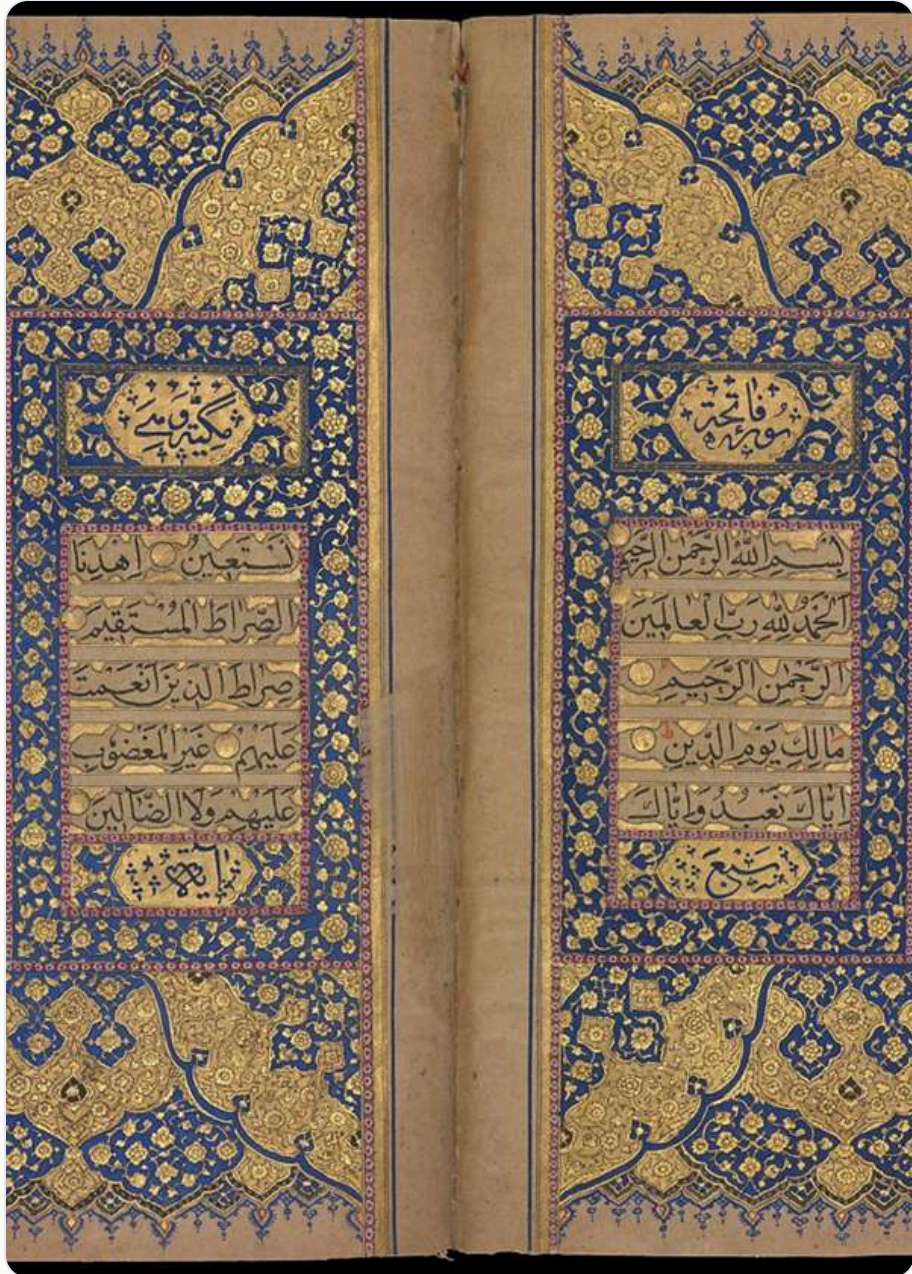 سورة فاتحة
بِسْمِ اللهِ الرَّحْمٰنِ الرَّحِيمِ
اَلْحَمْدُ لِلّٰهِ رَبِّ الْعَالَمِينَ
الرَّحْمٰنِ الرَّحِيمِ
مَالِكِ يَوْمِ الدِّينِ
اِيَّاكَ نَعْبُدُ وَاِيَّاكَ
سَبْعَ
مَكِّيَّة وَهِيَ
نَسْتَعِينُ اِهْدِنَا
الصِّرَاطَ الْمُسْتَقِيمَ
صِرَاطَ الَّذِينَ اَنْعَمْتَ
عَلَيْهِمْ غَيْرِ الْمَغْضُوبِ
عَلَيْهِمْ وَلَا الضَّآلِّينَ
آية